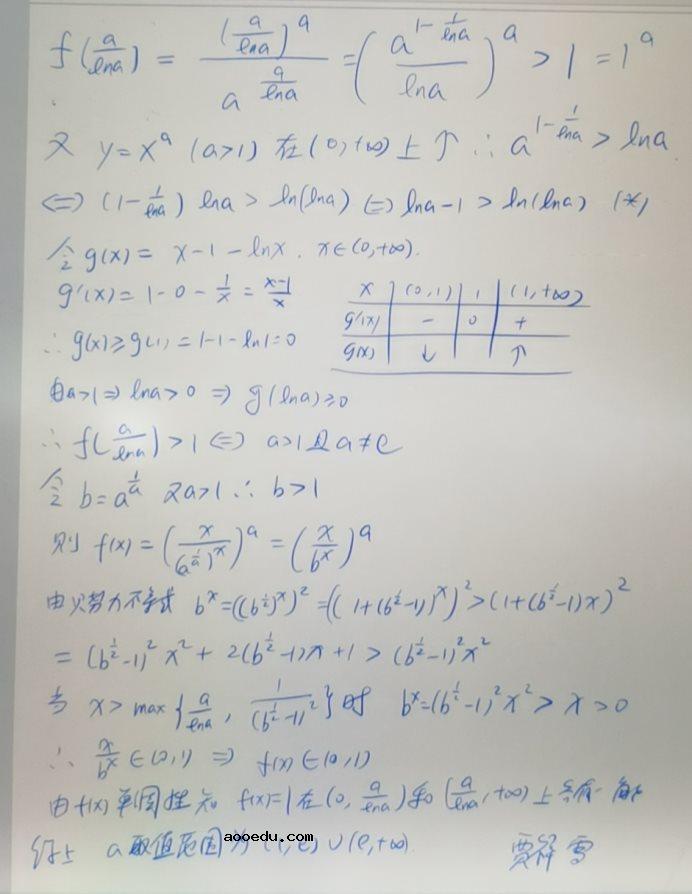 f(a/lna) = (a/lna)^a / a^(a/lna) = (a^(1-1/lna) / lna)^a > 1 = 1^a
又 y=x^a (a>1) 在(0,+∞)上↑ ∴ a^(1-1/lna) > lna
⇔ (1-1/lna) lna > ln(lna) ⇔ lna-1 > ln(lna) (*)
令 g(x) = x-1-lnx. x∈(0,+∞).
g'(x) = 1-0-1/x = (x-1)/x
x (0,1) 1 (1,+∞)
g'(x) - 0 +
g(x) ↓ ↑
∴ g(x)≥g(1) = 1-1-ln1=0
由a>1 ⇒ lna>0 ⇒ g(lna)≥0
∴ f(a/lna)>1 ⇔ a>1且a≠e
令 b=a^(1/a) 又a>1 ∴ b>1
则 f(x) = (x/(a^(1/a))^x)^a = (x/b^x)^a
由贝努力不等式 b^x=((b^(1/2))^x)^2=((1+(b^(1/2)-1))^x)^2>(1+(b^(1/2)-1)x)^2
= (b^(1/2)-1)^2 x^2 + 2(b^(1/2)-1)x+1 > (b^(1/2)-1)^2 x^2
当 x> max{a/lna, 1/(b^(1/2)-1)^2}时 b^x=(b^(1/2)-1)^2 x^2 > x > 0
∴ x/b^x ∈(0,1) ⇒ f(x)∈(0,1)
由f(x)单调性知 f(x)=1在(0, a/lna)和(a/lna,+∞)上各有一解
综上 a取值范围为(1,e)∪(e,+∞) 贾符雪
aooedu.com